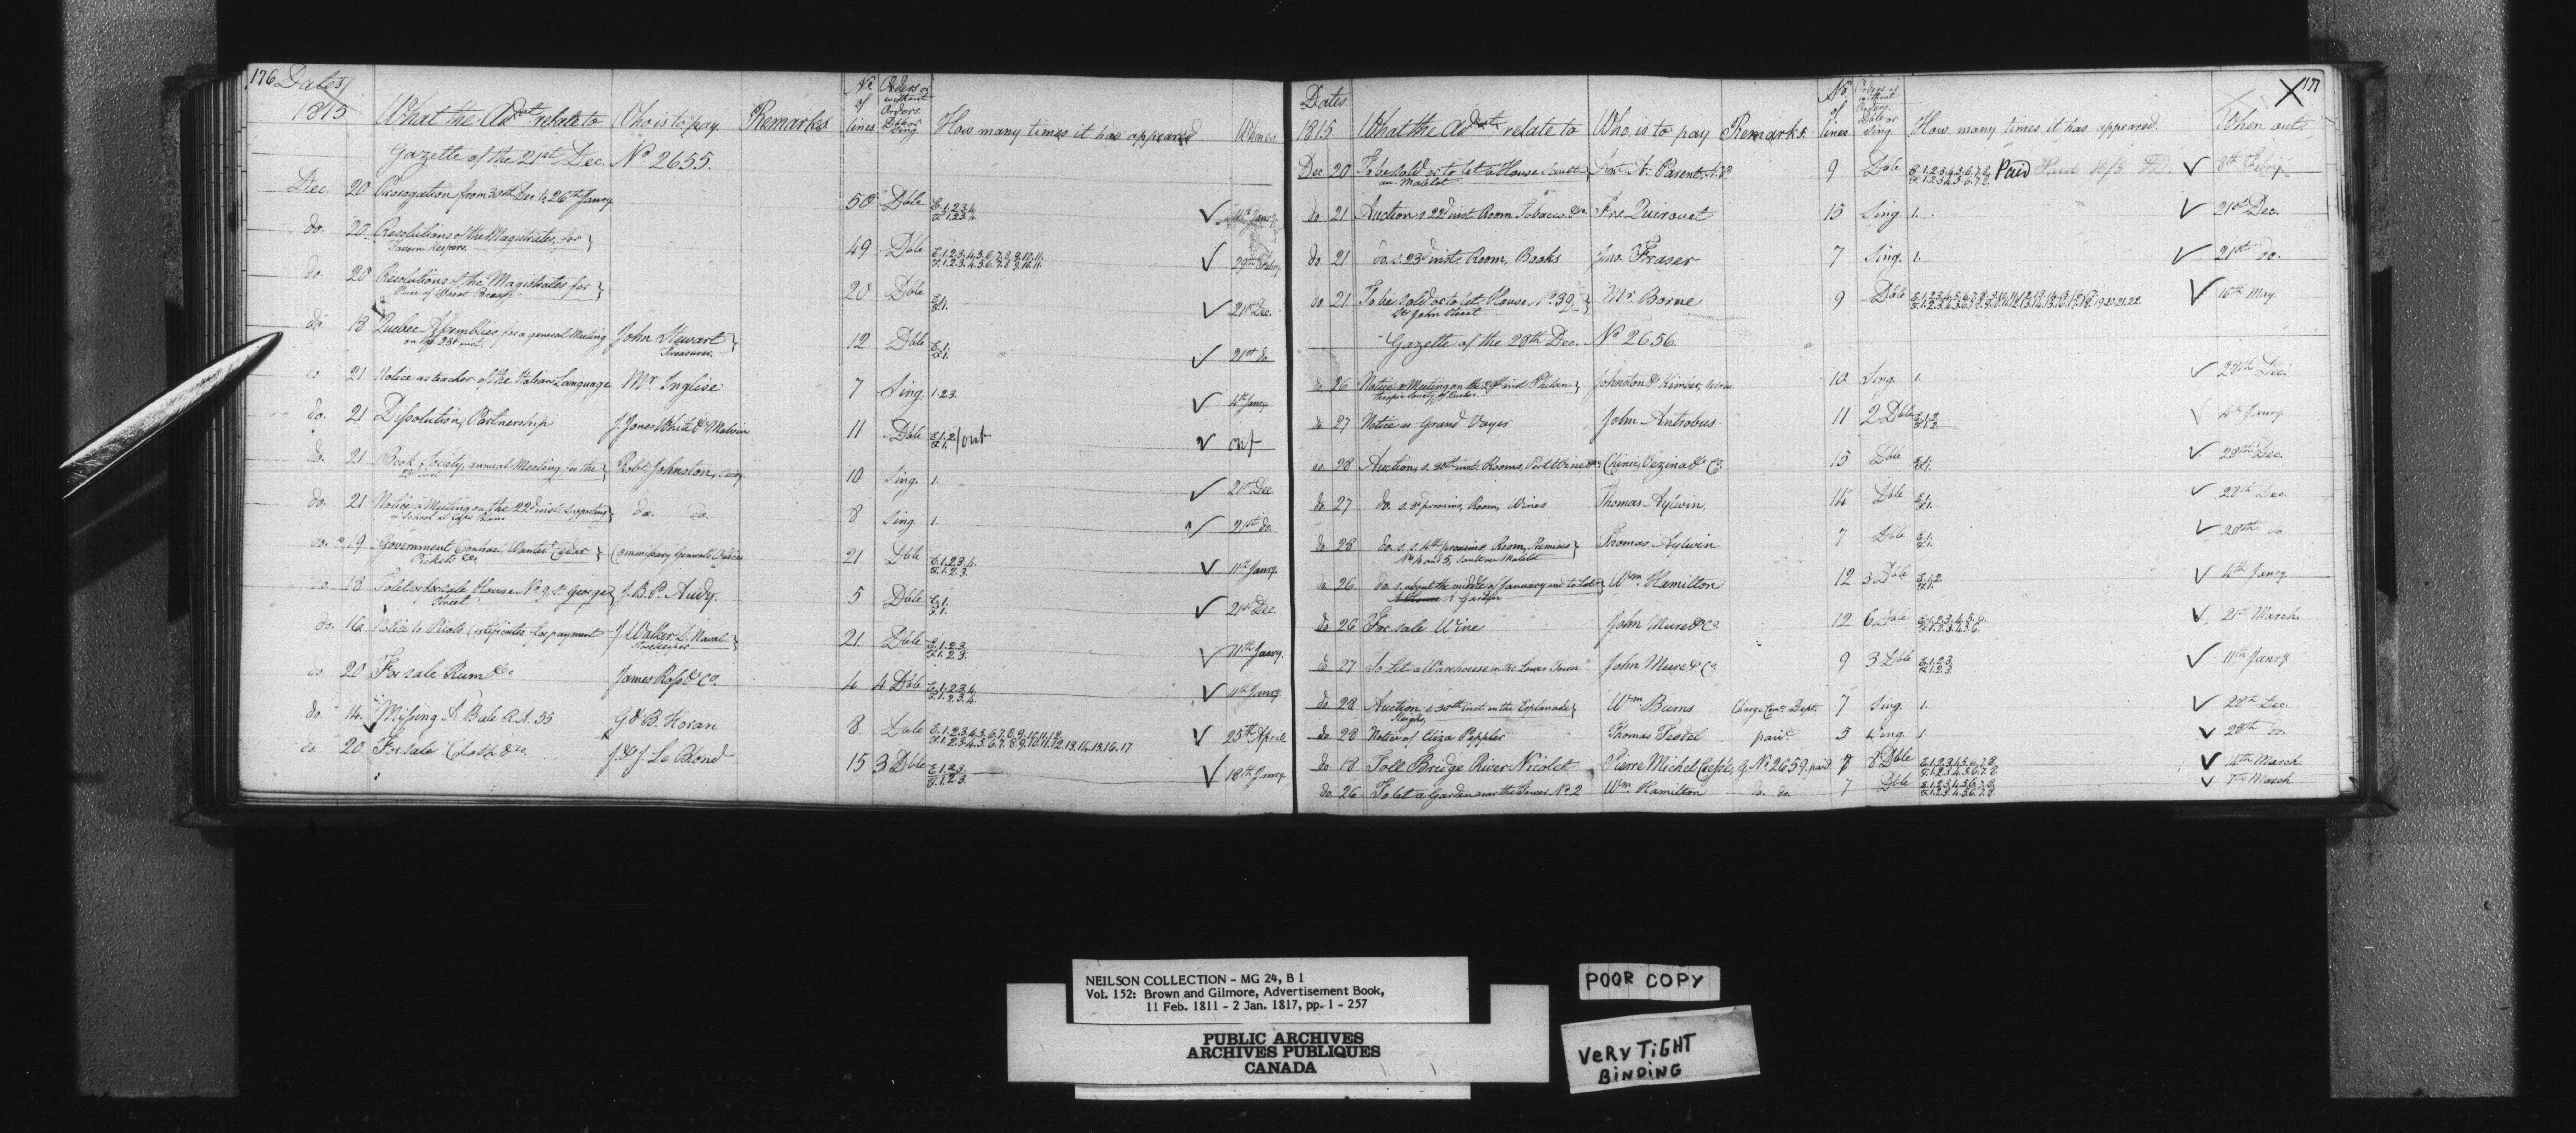 176 Dates 1815 What the Adv.t relate to Who is to pay Remarks No of lines Orders or without Orders Dble or Sing How many times it has appeared When
Gazette of the 21st Dec. No 2655.
Dec. 20 Prorogation from 30th Dec to 26th Janry 50 Dble E.1.2.3.4. F.1.2.3.4. ✓ Janry
do. 20 Resolutions of the Magistrates, for Tavern keepers. 49 Dble E.1.2.3.4.5.6.7.8.9.10.11. F.1.2.3.4.5.6.7.8.9.10.11. ✓ 29th
do. 20 Resolutions of the Magistrates for Price of Bread 20 Dble E.1. F.1. ✓ 21st Dec.
do. 18 Quebec Assemblies, for a general Meeting on the 23d inst. John Stewart Treasurer. 12 Dble E.1. F.1. ✓ 21st do
do 21 Notice as teacher of the Italian Language Mr Inglise 7 Sing. 1.2.3. ✓ 4th Janry
do. 21 Dissolution, Partnership J. Jones White & Melvin 11 Dble E.1.2 F.1. /out ✓ out
do. 21 Book Society, annual Meeting, for the inst Robt Johnston, Secry. 10 Sing. 1. ✓ 21st Dec
do. 21. Notice a Meeting on the 22d inst. supporting a School at Cape Blanc do. do. 8 Sing. 1. ✓ 21st do.
do. 19 Government Contract, Wanted Cedar Pickets &c. Commissary General's Office 21 Dble E.1.2.3.4. F.1.2.3. ✓ 11th Janry.
do. 18 To let or for sale House No 9. St George Street J. B. P. Audy. 5 Dble E.1. F.1. ✓ 21st Dec.
do. 16 Notice to Pilots Certificates for payment J. Walker L. Naval Storekeeper 21 Dble E.1.2.3. F.1.2.3. ✓ 11th Janry.
do 20 For sale Rum &c James Ross & Co. 4 4 Dble E.1.2.3.4. F.1.2.3.4. ✓ 11th Janry.
do. 14. Missing A Bale R.A. 55 G & B. Horan 8 Dble E.1.2.3.4.5.6.7.8.9.10.11.12. F.1.2.3.4.5.6.7.8.9.10.11.12.13.14.15.16.17 ✓ 25th April
do. 20 For sale Cloth &c. J. & J. Le Blond 15 3 Dble E.1.2.3. F.1.2.3. ✓ 18th Janry.
177 Dates. 1815 What the Advt relate to Who is to pay Remarks. No. of lines Orders or without Orders Dble or Sing How many times it has appeared. When out.
Dec 20 To be sold or to let a House Sault au Matelot Ant. A. Parent, N.P. 9 Dble E.1.2.3.4.5.6.7.8. F.1.2.3.4.5.6.7.8. Paid Paid ✓ 8th Febry.
do. 21 Auction s. 22d inst. Room Tobacco &c. Fre Quirouet 15 Sing. 1. ✓ 21st Dec.
do. 21 do. s. 23d inst. Room, Books Jno. Fraser 7 Sing. 1. ✓ 21st do.
do. 21 To be sold or to let House No. 39, St John Street Mr. Borne 9 Dble ✓ 16th May.
Gazette of the 28th Dec. No 2656.
do 26 Notice a Meeting on the inst. Philanthropic Society of Quebec Johnston & Kimber, 10 Sing. 1. ✓ 28th Dec.
do 27 Notice as Grand Voyer John Antrobus 11 2 Dble E.1.2 F.1.2 ✓ 4th Janry
do. 28 Auction, s. 30th inst. Rooms, Port Wine &c Chinic, Vezina & Co. 15 Dble E.1. F.1. ✓ 28th Dec.
do 27 do. s. 3d proximo, Room, Wines Thomas Aylwin. 14 Dble E.1. F.1. ✓ 28th Dec.
do 28 do. s. s. 4th proximo, Room, Premises No 4 and 5, Sault au Matelot Thomas Aylwin 7 Dble E.1. F.1. ✓ 28th do
do 26 do. s. about the middle of January and to Let a Garden Wm. Hamilton 12 3 Dble E.1.2. F.1. ✓ 4th Janry.
do 26 For sale Wine John Mure & Co. 12 6 Dble E.1.2.3.4.5.6. F.1.2.3.4.5.6. ✓ 21st March.
do 27 To Let a Warehouse in the Lower Town John Mure & Co. 9 3 Dble E.1.2.3. F.1.2.3 ✓ 11th Janry.
do. 28 Auction, s. 30th inst. on the Esplanade Sleighs, Wm Burns Charge Comy Dept. 7 Sing. 1. ✓ 28th Dec.
do. 28 Notice of Eliza Peppler Thomas paid 5 Sing. 1. ✓ 28th do.
do 18 Toll Bridge River Nicolet Pierre Michel G. No 2659, paid 7 8 Dble E.1.2.3.4.5.6.7.8. F.1.2.3.4.5.6.7.8. ✓ March
do. 26 To let a Garden near the Tower No. 2 Wm Hamilton do. do. 7 Dble E.1.2.3.4.5.6.7.8. F.1.2.3.4.5.6.7.8. ✓ 7th March
NEILSON COLLECTION - MG 24, B 1
Vol. 152: Brown and Gilmore, Advertisement Book,
11 Feb. 1811 - 2 Jan. 1817, pp. 1 - 257
PUBLIC ARCHIVES
ARCHIVES PUBLIQUES
CANADA
POOR COPY
VERY TIGHT
BINDING